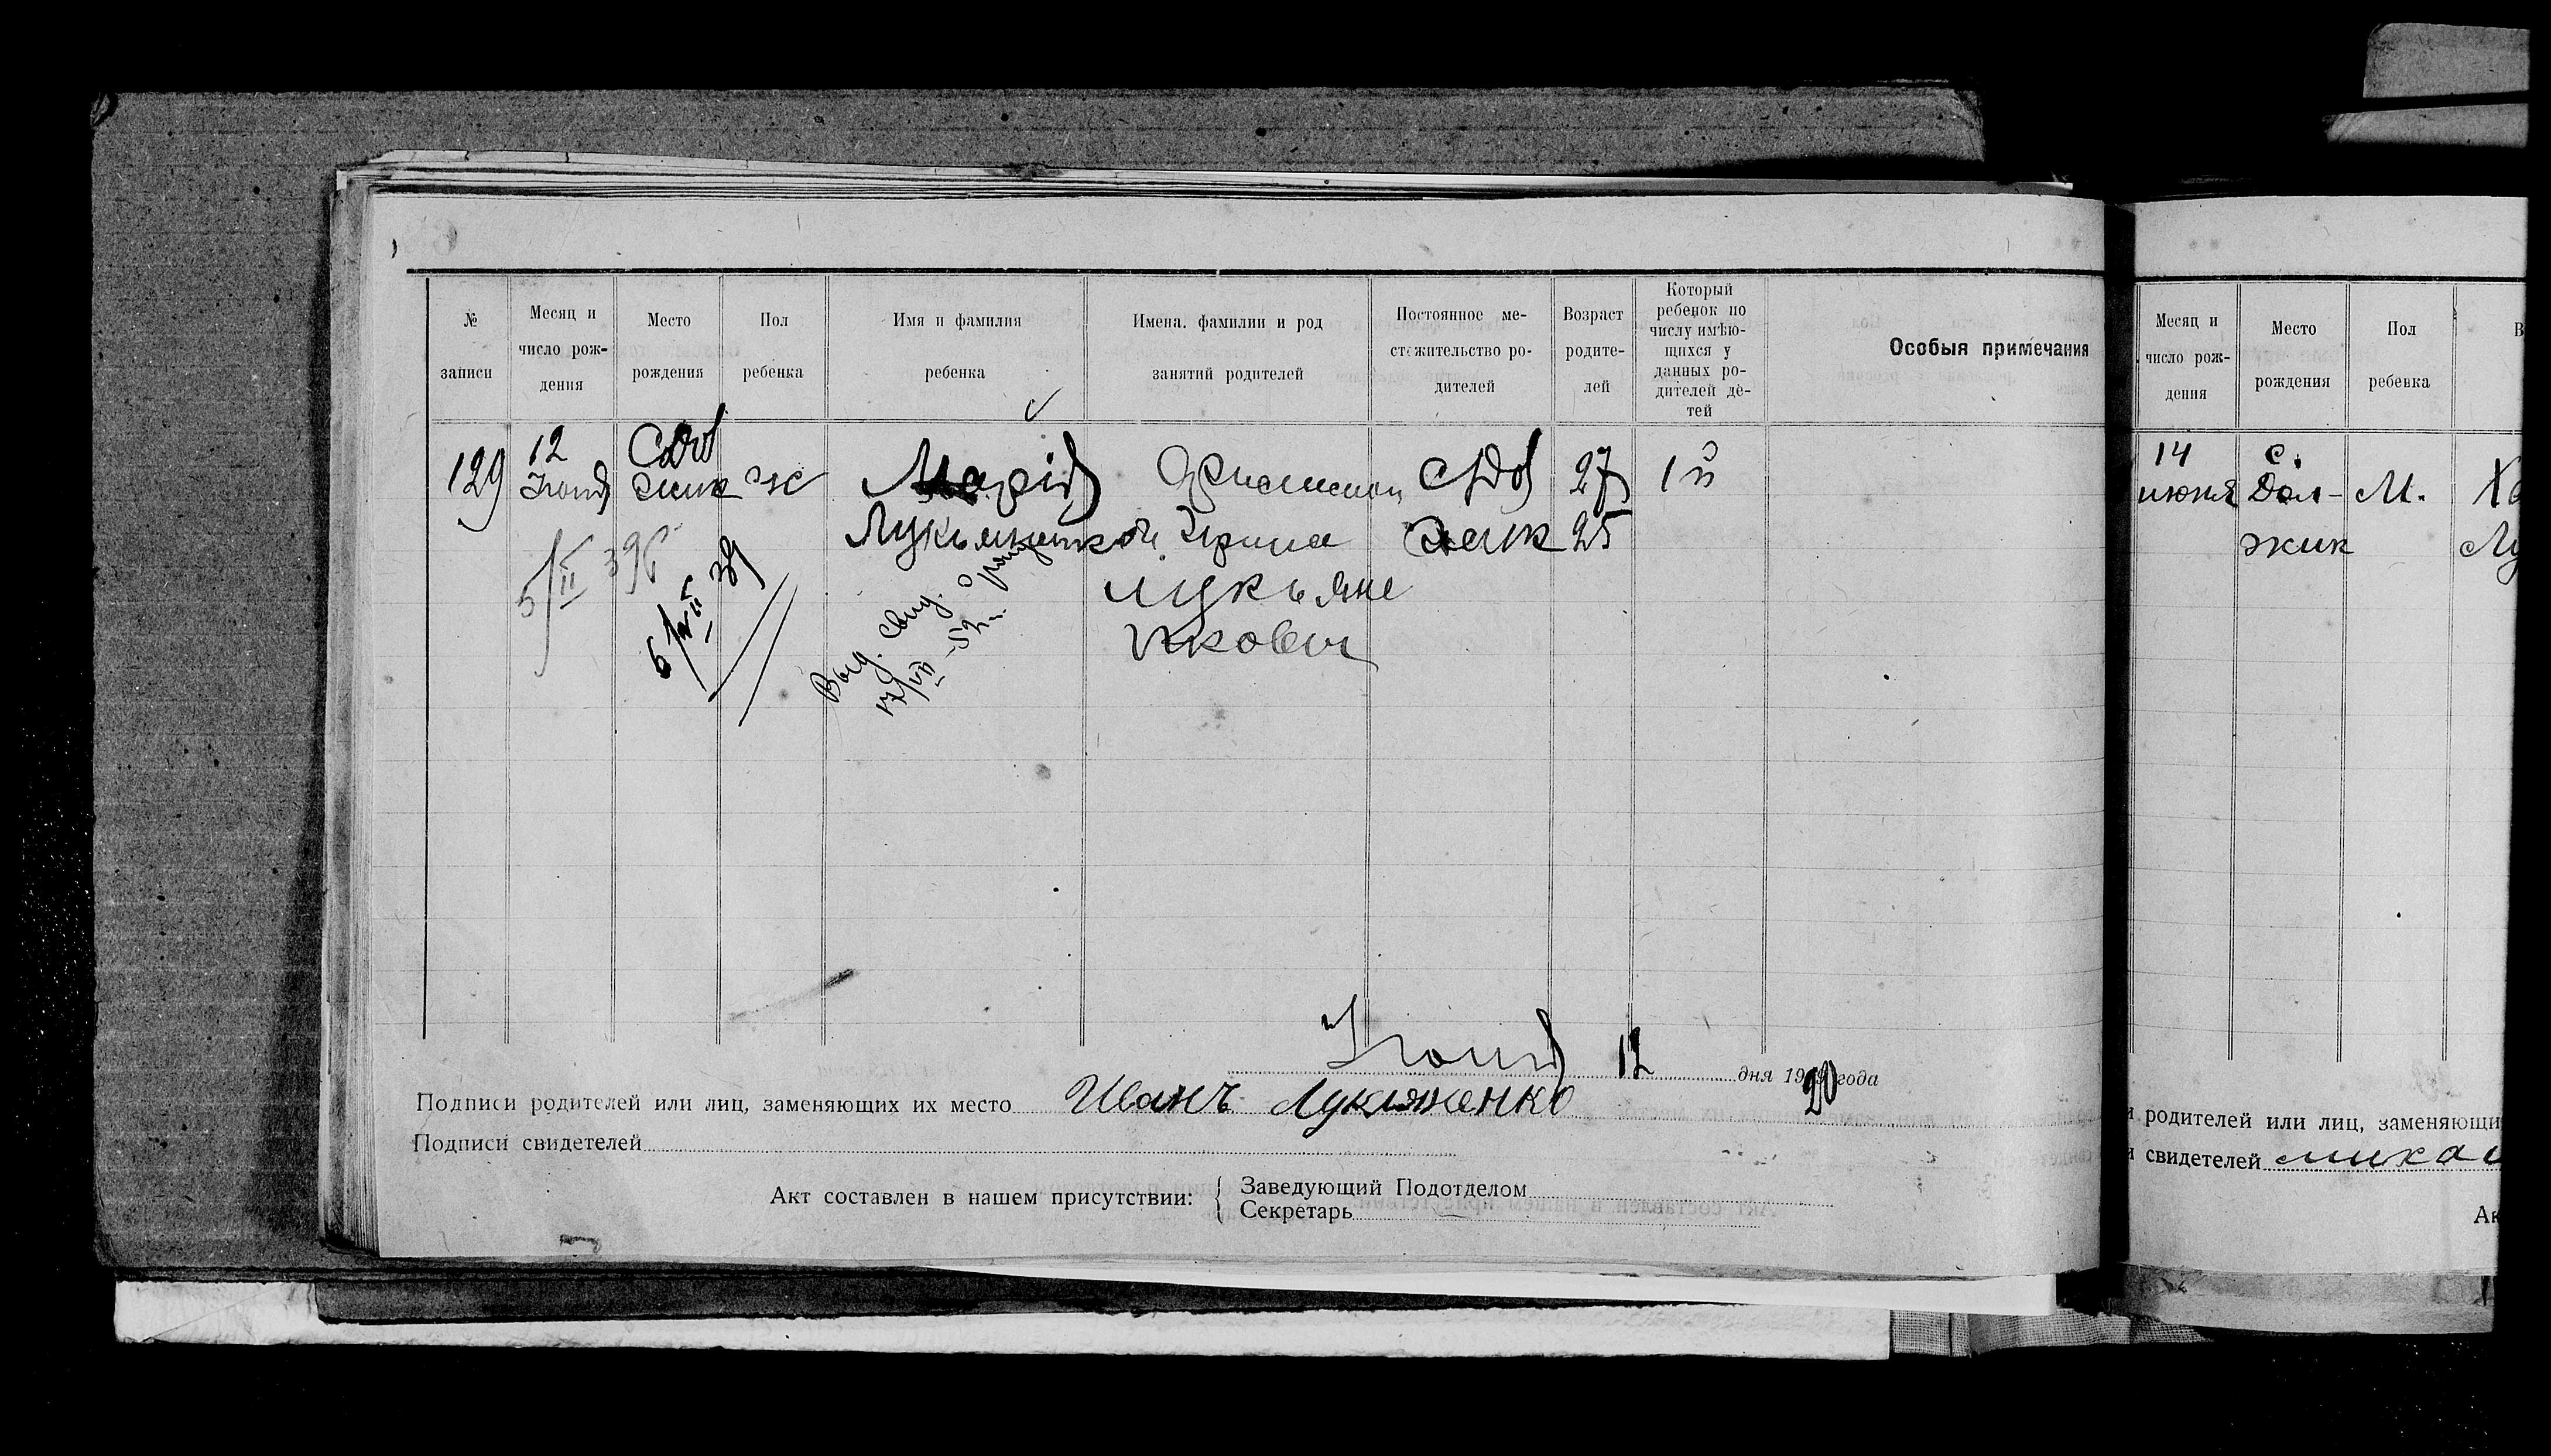 № записи
Месяц и число рождения
Место рождения
Пол ребенка
Имя и фамилия ребенка
Имена, фамилии и род занятий родителей
Постоянное местожительство родителей
Возраст родителей
Который ребенок по числу имѣющихся у данных родителей детей
Особыя примечания
129
12
ж
Марія
27
1й
Ирина
25
Лукьяне
нкович
5/II 39г
6/VII 39
Выд. свид. о рожд
17/VII-52г.
12 дня 1920 года
Подписи родителей или лиц, заменяющих их место Иванъ Лукяненко
Подписи свидетелей
Акт составлен в нашем присутствии:
Заведующий Подотделом
Секретарь
Месяц и число рождения
Место рождения
Пол ребенка
14 июня
с. Должик
М.
родителей или лиц, заменяющи
свидетелей
Ак